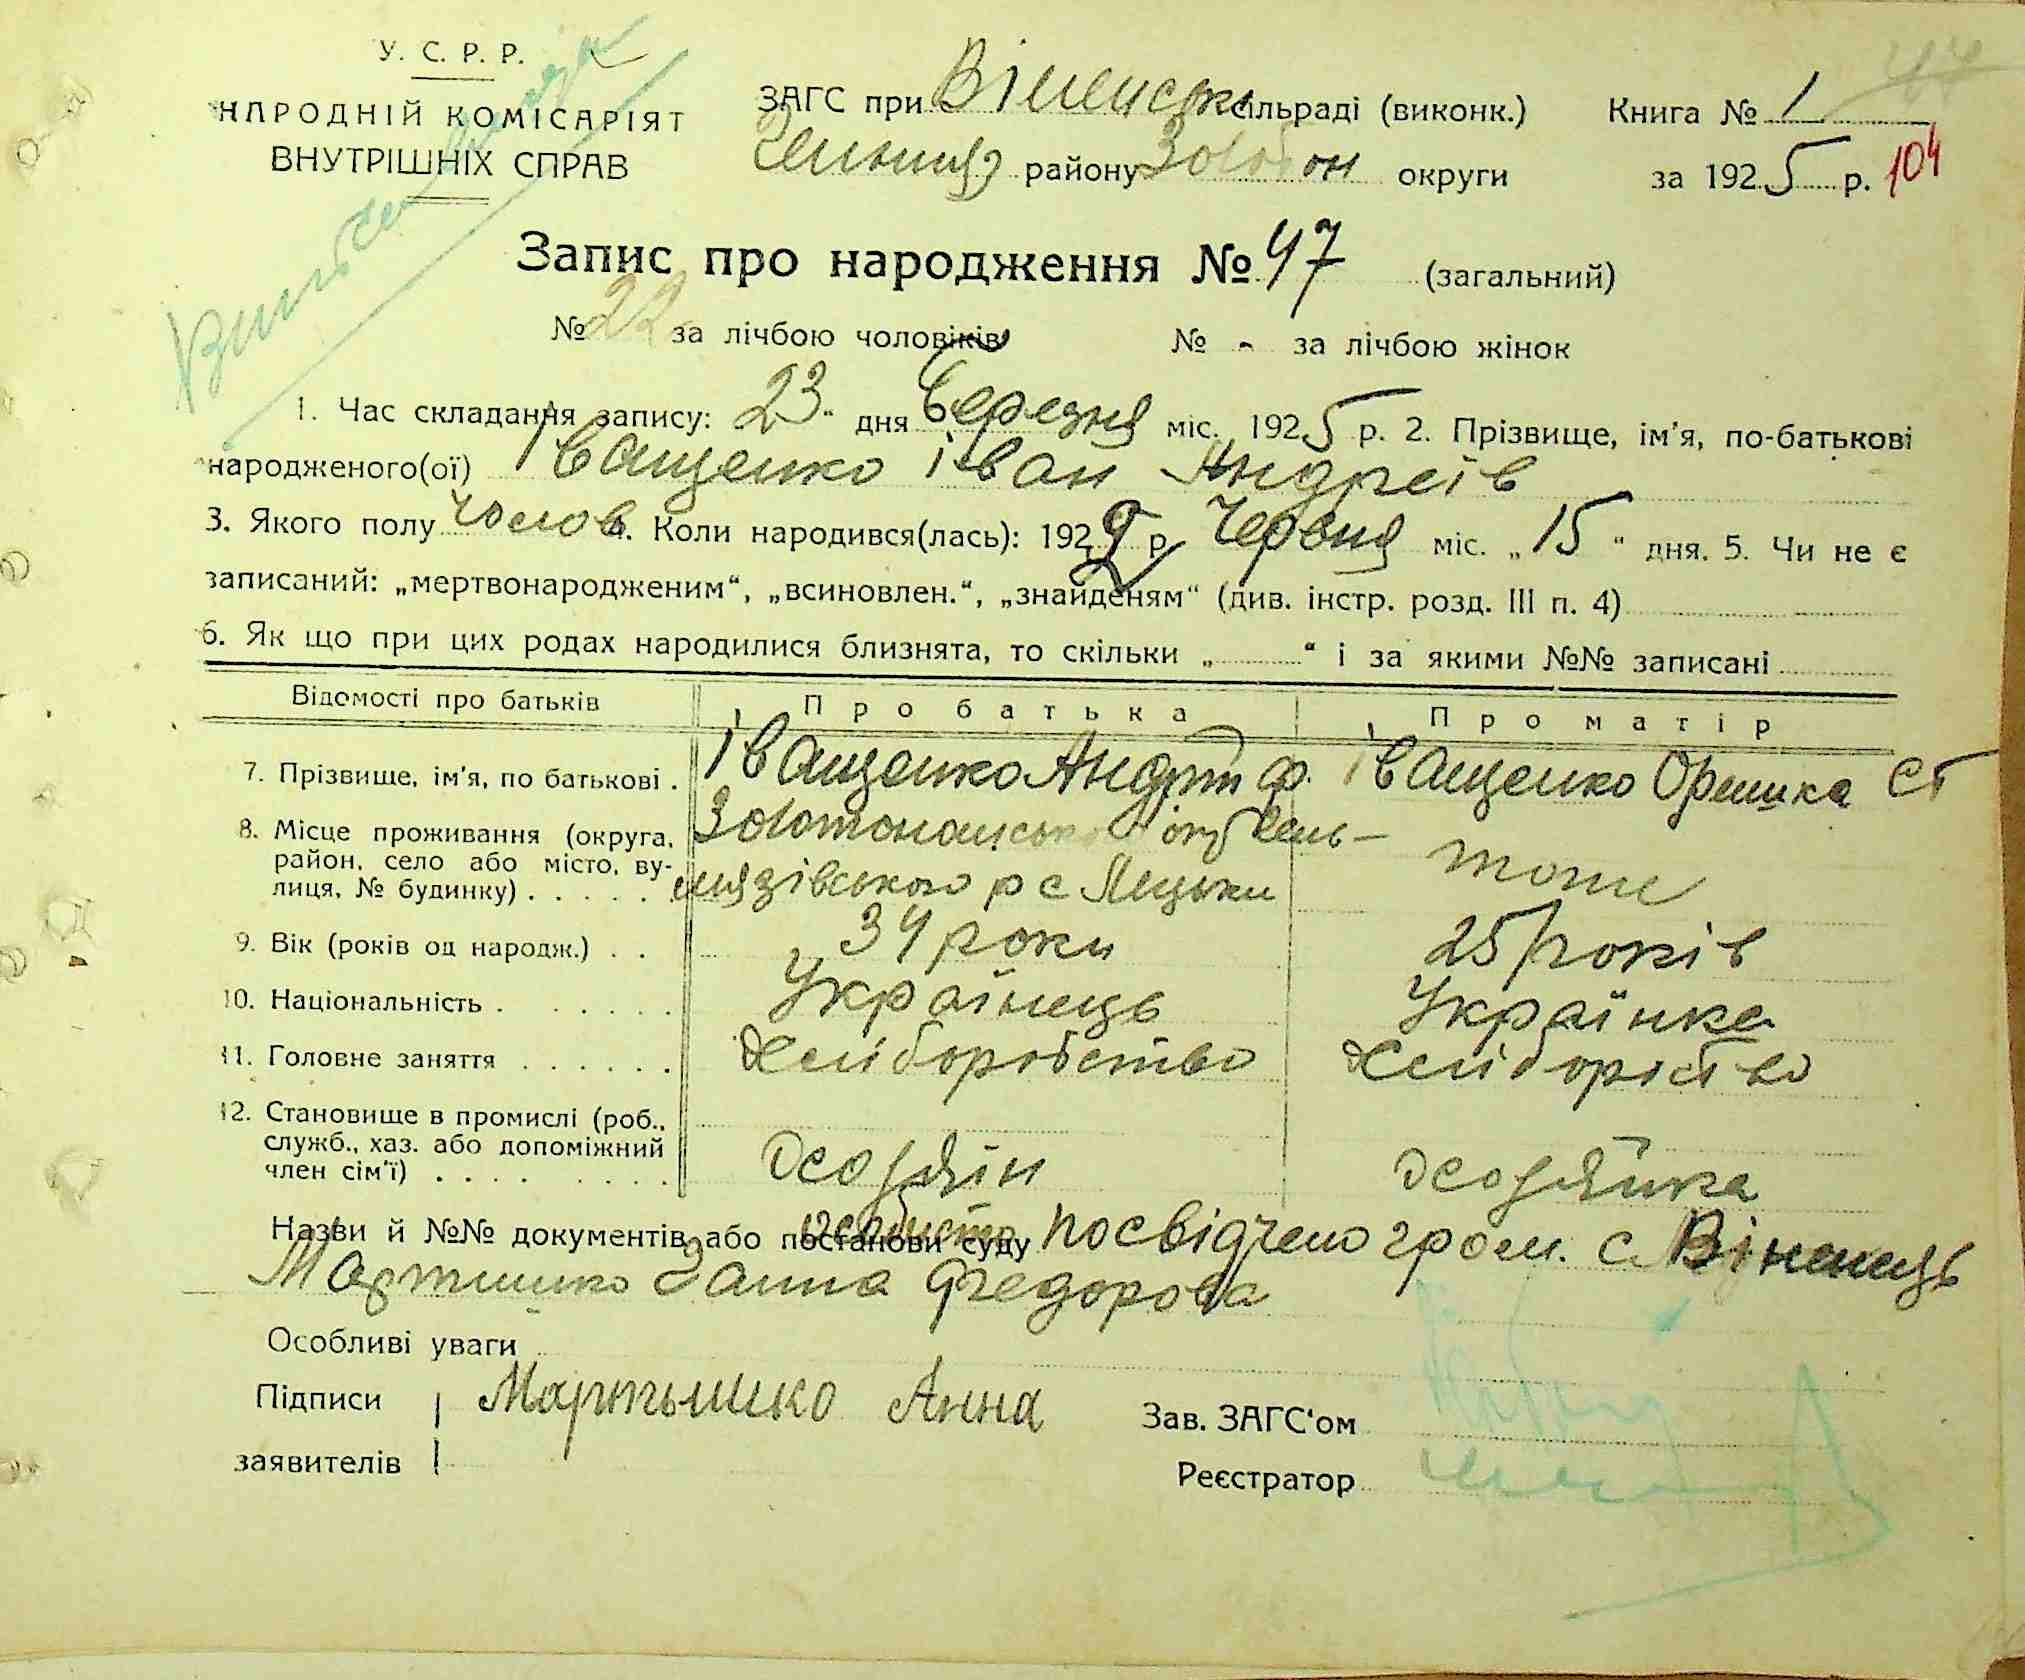 У. С. Р. Р.
НАРОДНІЙ КОМІСАРІЯТ
ВНУТРІШНІХ СПРАВ
ЗАГС при сільраді (виконк.) Книга № 1
району Золотон округи за 1925 р. 104
Запис про народження № 47 (загальний)
№ 22 за лічбою чоловіків № - за лічбою жінок
1. Час складання запису: 23 " дня березня міс. 1925 р. 2. Прізвище, ім'я, по-батькові
народженого(ої) Іващенко Іван Андреїв
3. Якого полу чолов. 4. Коли народився(лась): 192 р. червня міс. „ 15 " дня. 5. Чи не є
записаний: „мертвонародженим", „всиновлен.", „знайденям" (див. інстр. розд. III п. 4)
6. Як що при цих родах народилися близнята, то скільки „ " і за якими №№ записані
Відомості про батьків Про батька Про матір
7. Прізвище, ім'я, по батькові . Іващенко Андрій ф. Іващенко Оришка Ст
8. Місце проживання (округа, район, село або місто, вулиця, № будинку) . . . . . Золотоноської окр Гель-
мязівського р с Лецьки тоже
9. Вік (років од народж.) . . 34 роки 25 років
10. Національність . . . . . . Українець Українка
11. Головне заняття . . . . . . Хліборобство Хліборобство
12. Становище в промислі (роб., служб., хаз. або допоміжний член сім'ї) . . . . . . . . хозяїн хозяйка
Назви й №№ документів або постанови суду особисто посвідчено гром. с Віненець
Мартишко Ганна Федорова
Особливі уваги
Підписи Мартьшко Анна Зав. ЗАГС'ом
заявителів Реєстратор